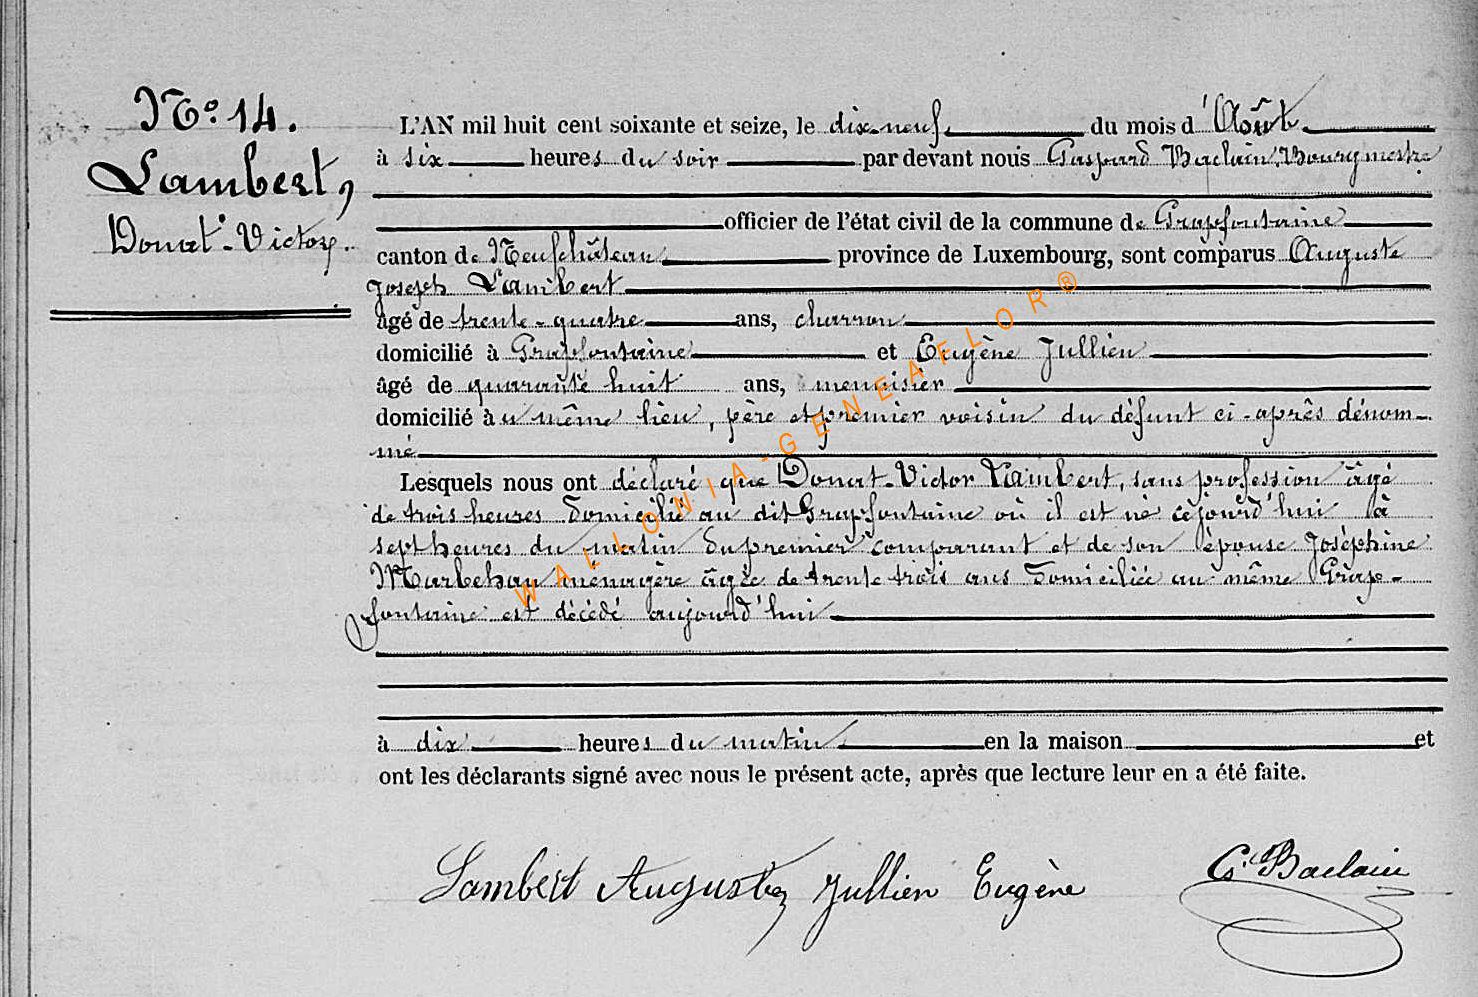 N.º 14.
Lambert,
Donat-Victor.
L'AN mil huit cent soixante et seize, le dix-neuf du mois d'Août
à six heures du soir par devant nous Gaspard Baclain, Bourgmestre
officier de l'état civil de la commune de Grapfontaine
canton de Neufchâteau province de Luxembourg, sont comparus Auguste
Joseph Lambert
âgé de trente-quatre ans, charron
domicilié à Grapfontaine et Eugène Jullien
âgé de quarante huit ans, menuisier
domicilié au même lieu, père et premier voisin du défunt ci-après dénom-
mé
Lesquels nous ont déclaré que Donat-Victor Lambert, sans profession âgé
de trois heures domicilié au dit Grapfontaine où il est né cejourd'hui à
sept heures du matin du premier comparant et de son épouse Joséphine
Marbehan ménagère âgée de trente trois ans domiciliée au même Grap-
fontaine est décédé aujourd'hui
à dix heures du matin en la maison et
ont les déclarants signé avec nous le présent acte, après que lecture leur en a été faite.
Lambert Auguste Jullien Eugène G. Baclain
WALLONIA-GENEAFLOR®